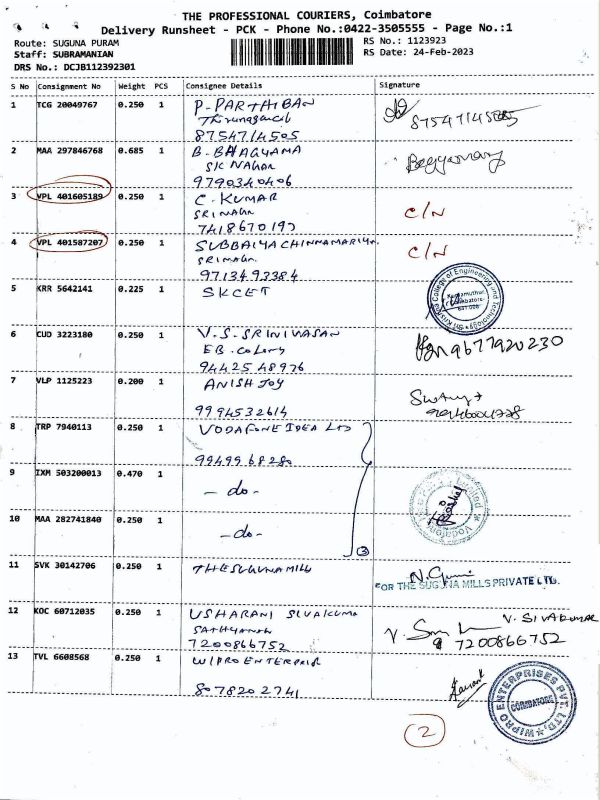 THE PROFESSIONAL COURIERS, Coimbatore
Delivery Runsheet - PCK - Phone No.:0422-3505555 - Page No.:1
Route: SUGUNA PURAM
RS No.: 1123923
Staff: SUBRAMANIAN
RS Date: 24-Feb-2023
DRS No.: DCJB112392301
S No Consignment No Weight PCS Consignee Details Signature
1 TCG 20049767 0.250 1 P. PARTHIBAN
8754714505
2 MAA 297846768 0.685 1 B. BHAGYAMA
SK NAGAR
9790340406
3 VPL 401605189 0.250 1 C. KUMAR C/N
SRINAGR
7418670197
4 VPL 401587207 0.250 1 SUBBAIYA CHINNAMARIYA C/N
SRINAGR
9713493384
5 KRR 5642141 0.225 1 SKCET
Sri Krishna College of Engineering and Technology
Coimbatore-
641 008
6 CUD 3223180 0.250 1 V.S. SRINIVASAN 9677920230
EB. colony
9442548976
7 VLP 1125223 0.200 1 ANISH JOY
9994532614
8 TRP 7940113 0.250 1 VODAFONE IDEA LTD
9949968280
9 IXM 503200013 0.470 1 - do -
10 MAA 282741840 0.250 1 - do -
3
11 SVK 30142706 0.250 1 THE SUGUNA MILL
FOR THE SUGUNA MILLS PRIVATE LTD.
12 KOC 60712035 0.250 1 USHARANI SIVAKUMA V. SIVAKUMAR
7200866752 7200866752
13 TVL 6608568 0.250 1 WIPRO ENTERPRIS
8078202741
WIPRO ENTERPRISES PVT. LTD.
COIMBATORE
2